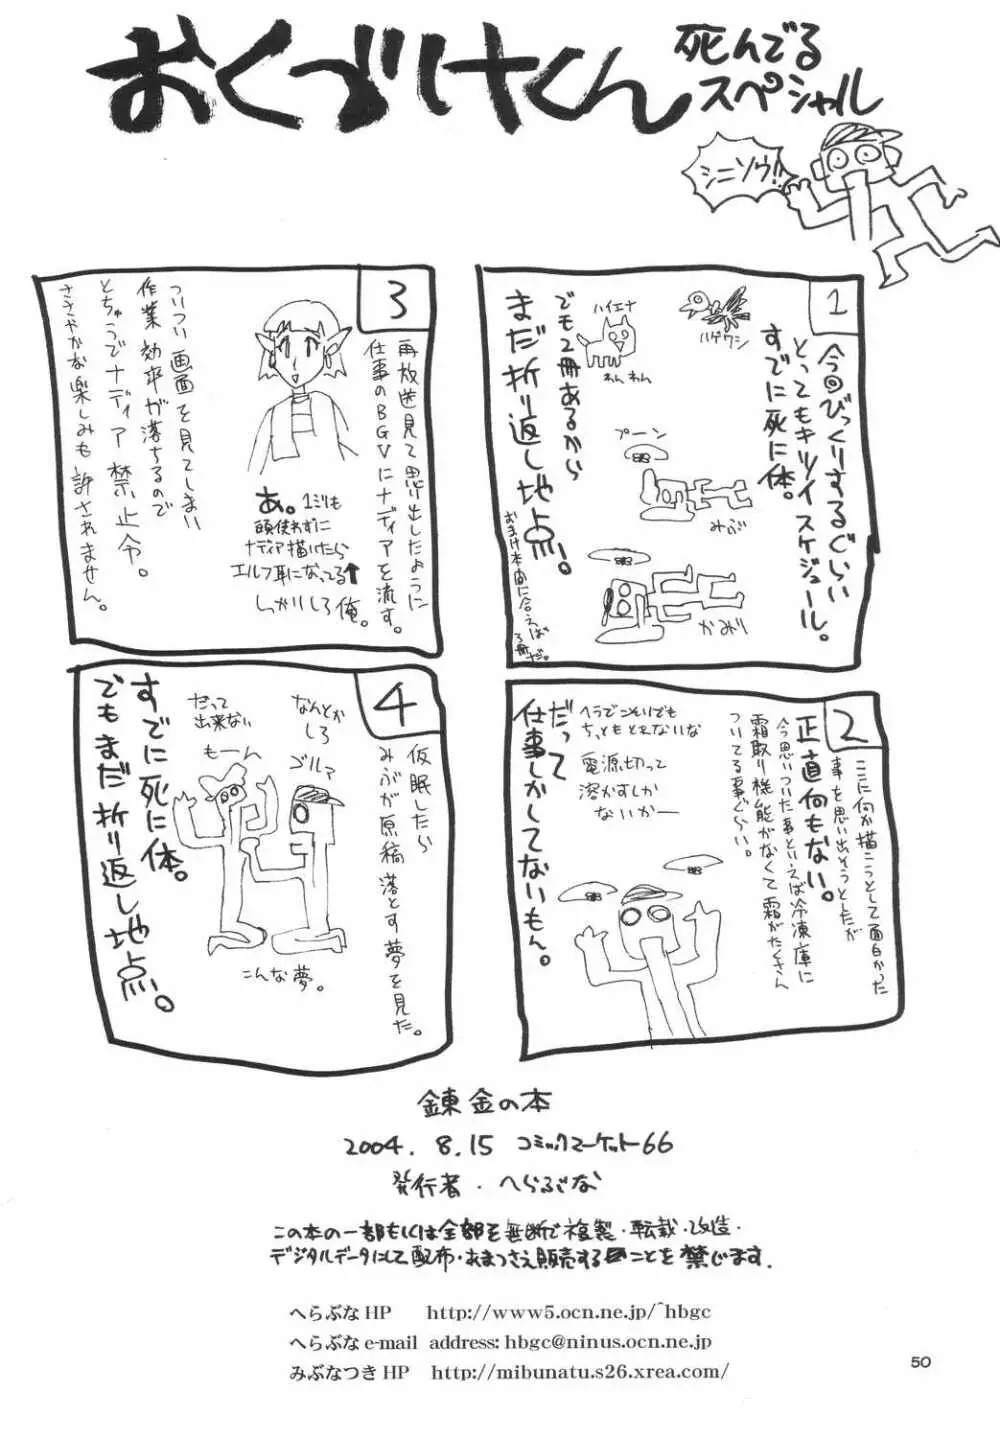 おくづけくん
死んでる
スペシャル
シニソウ!!
1
今回びっくりするぐらい
とってもキツイスケジュール。
すでに死に体。
ハゲワシ
ハイエナ
わんわん
でも2冊あるから
まだ折り返し地点!
おまけ本間に合えば
3冊だ。
プーン
みぶ
かみり
2
ここに何か描こうとして面白かった
事を思い出そうとしたが
正直何もない。
今思いついた事といえば冷凍庫に
霜取り機能がなくて霜がたくさん
ついてる事ぐらい。
ヘラでこそいでも
ちっともとれないな
電源切って
溶かすしか
ないかー
だって
仕事しかしてないもん。
3
再放送見て思い出したように
仕事のBGVにナディアを流す。
あ。1ミリも
頭使わずに
ナディア描いたら
エルフ耳になってる↑
しっかりしろ俺。
ついつい画面を見てしまい
作業効率が落ちるので
とちゅうでナディア禁止令。
ささやかな楽しみも許されません。
4
仮眠したら
みぶが原稿落とす夢を見た。
なんとか
しろ
ゴルァ
だって
出来ない
もーん
こんな夢。
すでに死に体。
でもまだ折り返し地点。
錬金の本
2004.8.15 コミックマーケット66
発行者・へらぶな
この本の一部もしくは全部を無断で複製・転載・改造・
デジタルデータにして配布・あまつさえ販売することを禁じます.
へらぶなHP http://www5.ocn.ne.jp/~hbgc
へらぶなe-mail address:hbgc@ninus.ocn.ne.jp
みぶなつきHP http://mibunatu.s26.xrea.com/
50